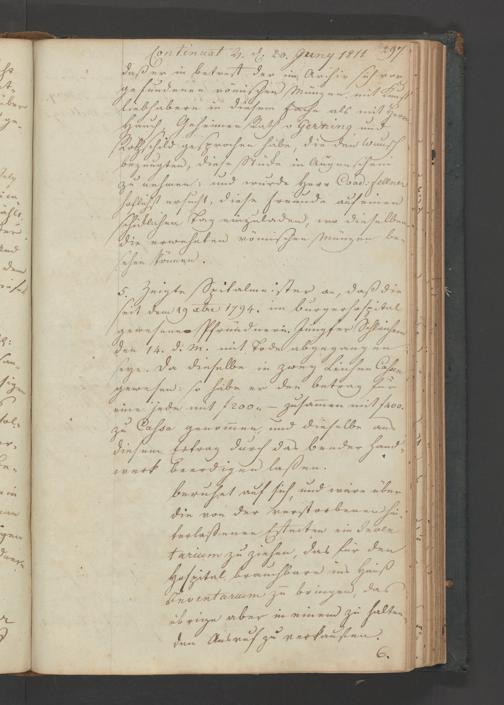 Continuat. d. 20. Juny 1811 297
daß er in betreff der im Archiv sich vor
gefundenen römischen Münzen mit Kunst
Liebhabern in diesem Fache als mit Herrn
Hauch, Geheimen Rath v Gerning und
Rothschild gesprochen habe, die den Wunsch
bezeugten, diese Stücke in Augenschein
zu nehmen; und wurde Herr Coad: Fellner
höflichst ersucht, diese Freunde auf einen
schicklichen Tag einzuladen, wo dieselben
die erwehnten römischen Münzen be
sehen können.
5. Zeigte Spitalmeister an, daß die
seit dem 19 abr 1794. im burgerhospital
gewesene Pfründnerin Jungfer
den 14. d. M. mit Tode abgegangen
seye. Da dieselbe in zwey Leichen Cassen
gewesen: so habe er den betrag für
eine jede mit f 200.- zusammen mit f 400.
zu Cassa genommen, und dieselbe aus
diesem Ertrag durch das bender Hand-
werk beerdigen lassen.
beruhet auf sich und wäre über
die von der Verstorbenen hin
terlassenen Effecten ein Inven
tarium zu ziehen, das für den
Hospital brauchbare ins Hauß
Inventarium zu bringen, das
übrige aber in einem zu halten
den Ausruf zu verkaufen.
6.